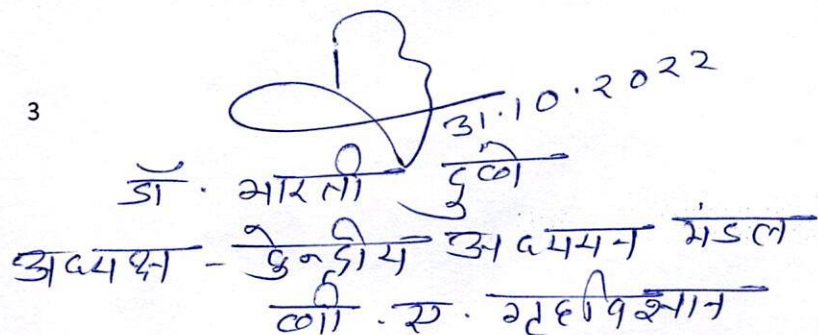 3
31.10.2022
डॉ. भारती दुबे
अध्यक्ष - केन्द्रीय अध्ययन मंडल
बी.ए. गृहविज्ञान